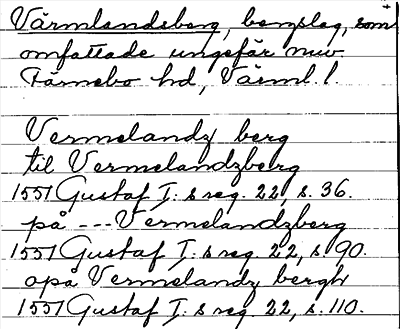 Värmlandsberg, bergslag, som
omfattade ungefär nuv.
Färnebo hd, Värml. l.
Vermelandz berg
til Vermelandzberg
1551 Gustaf I:s reg. 22, s. 36.
på --- Vermelandzberg
1551 Gustaf I:s reg. 22, s. 90.
opå Vermelandz bergh
1551 Gustaf I:s reg. 22, s. 110.